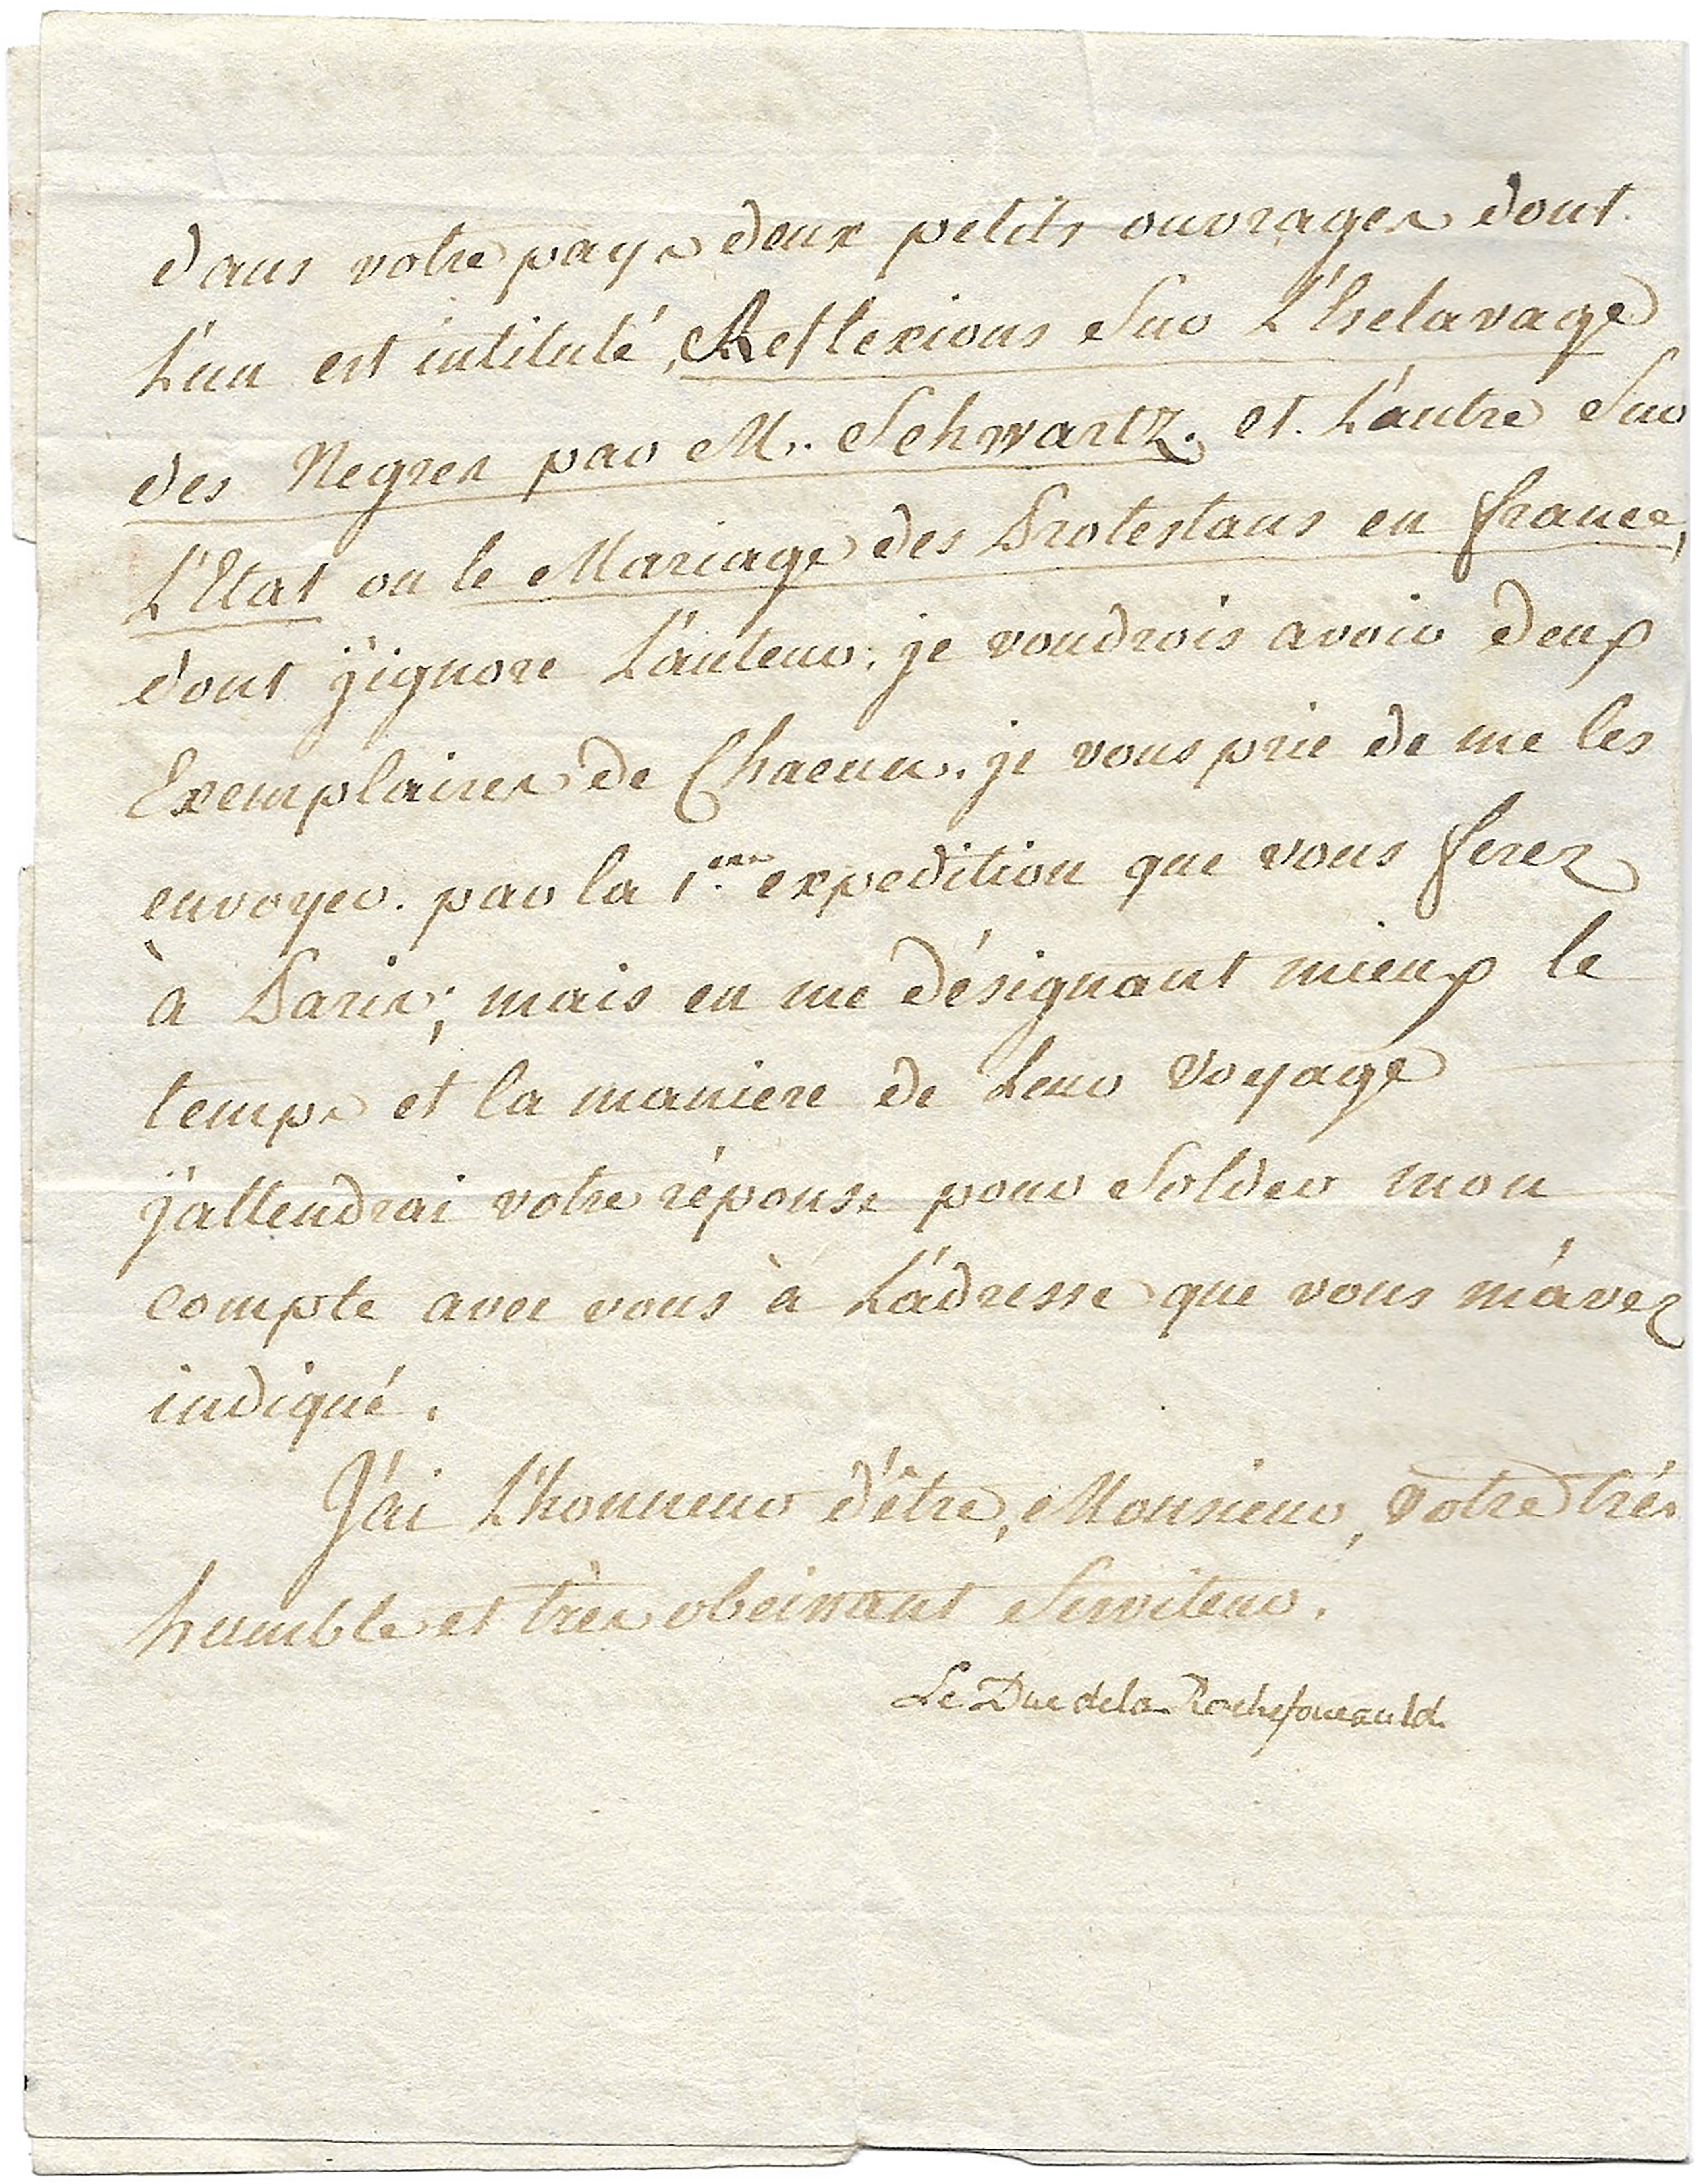 dans votre pays deux petits ouvrages dont
L'un est intitulé, Reflexions Sur L'Esclavage
des Negres par M. Schwartz. et L'autre Sur
L'Etat ou le Mariage des Protestans en france,
dont j'ignore L'auteur. je voudrois avoir deux
Exemplaires de Chacun. je vous prie de me les
envoyer. par la 1.ere expedition que vous ferez
à Paris; mais en me désignant mieux le
temps et la maniere de Leur Voyage
j'attendrai votre réponse pour Solder mon
compte avec vous à L'adresse que vous m'avez
indiqué.
J'ai L'honneur d'être, Monsieur, votre trés
humble et très obeissant Serviteur.
Le Duc de la Rochefoucauld.